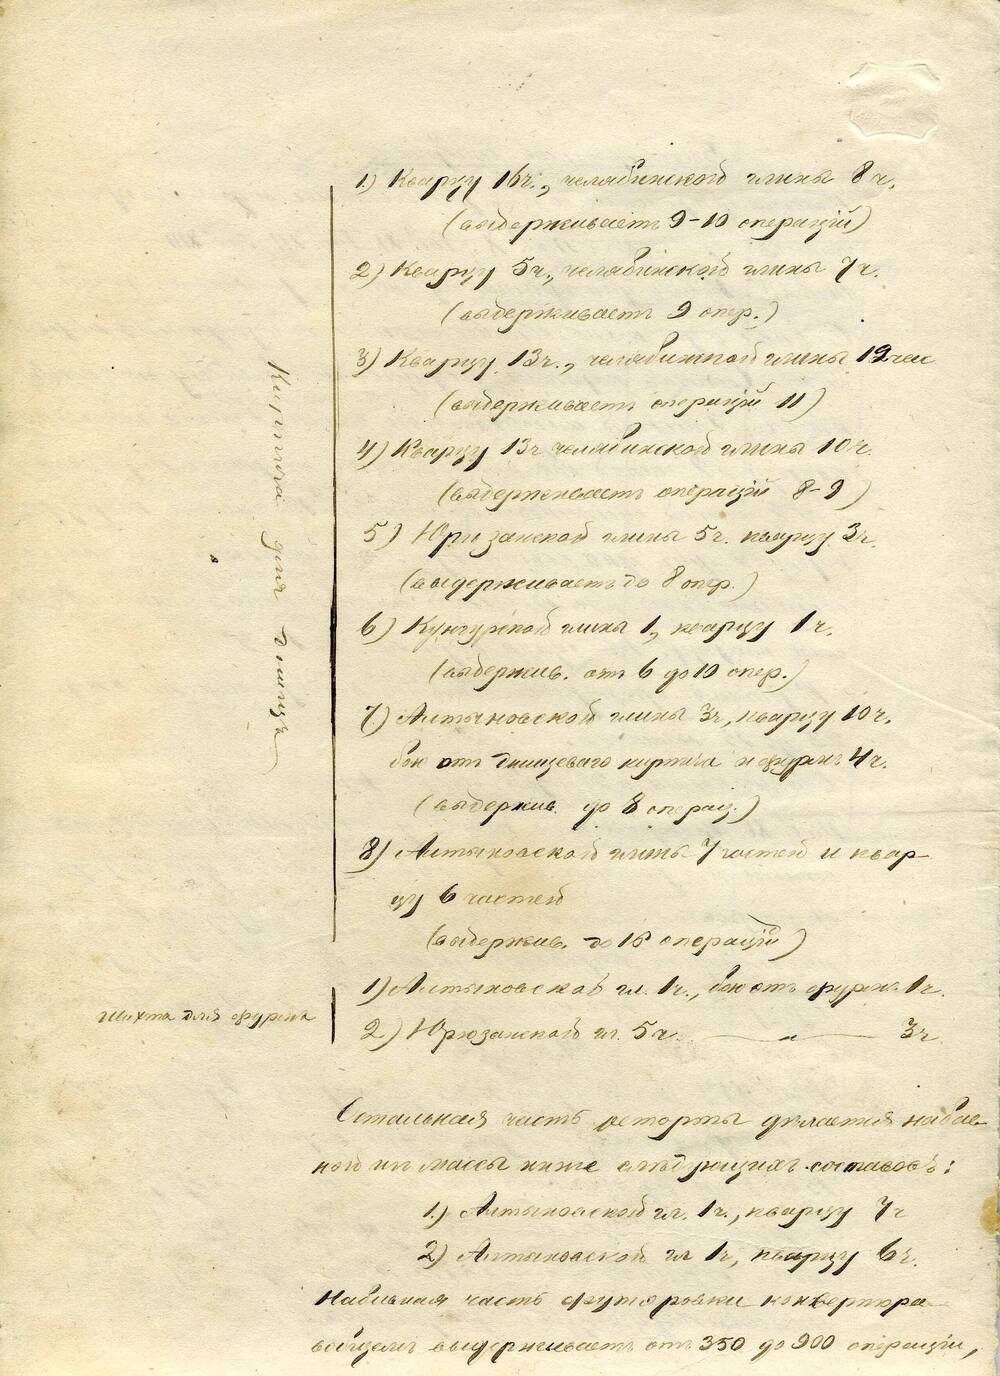 Кирпичъ для днищъ
1.) Кварцу 16ч., челябинской глины 8ч.
(выдерживаетъ 9-10 операцій)
2) Кварцу 5ч., челябинской глины 7ч.
(выдерживаетъ 9 опер.)
3) Кварцу 13ч., челябинской глины 12 час
(выдерживаетъ операцій 11)
4) Кварцу 13ч челябинской глины 10ч.
(выдерживаетъ операцій 8-9)
5) Юрюзанской глины 5ч. кварцу 3ч.
(выдерживаетъ до 8 опер.)
6) Кунгурской глины 1, кварцу 1ч.
(выдержив. отъ 6 до 10 опер.)
7) Алтыновской глины 3ч, кварцу 10ч.
бою отъ днищеваго кирпича и фурмъ 4ч.
(выдержив. до 8 операц.)
8) Алтыновской глины 7 частей и квар-
цу 6 частей
(выдержив. до 16 операцій)
Шихта для фурмъ
1) Алтыновской гл. 1ч., бою отъ фурмъ 1ч.
2) Юрюзанской гл. 5ч. — „ — 3ч
Остальная часть реторты дѣлается набив-
ной изъ массы ниже слѣдующихъ составовъ:
1.) Алтыновской гл. 1ч., кварцу 7ч
2) Алтыновской гл 1ч, кварцу 6ч.
Набивная часть футеровки конвертора
вообщемъ выдерживаетъ отъ 350 до 900 операцій,